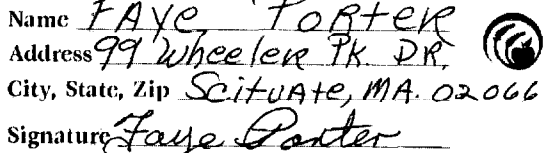 Name FAYE PORTER
Address 99 Wheeler PK. DR.
City, State, Zip SCITUATE, MA. 02066
Signature Faye Porter